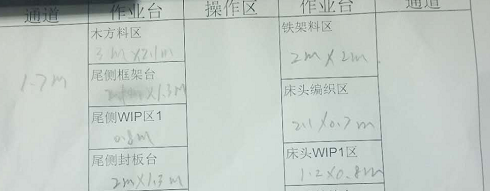 通道 作业台 操作区 作业台 通道
木方料区 铁架料区
2m×2m
1.7m
尾侧框架台 床头编织区
2.1×0.7m
尾侧WIP区1
0.8m
尾侧封板台 床头WIP1区
2m×1.3m 1.2×0.8m